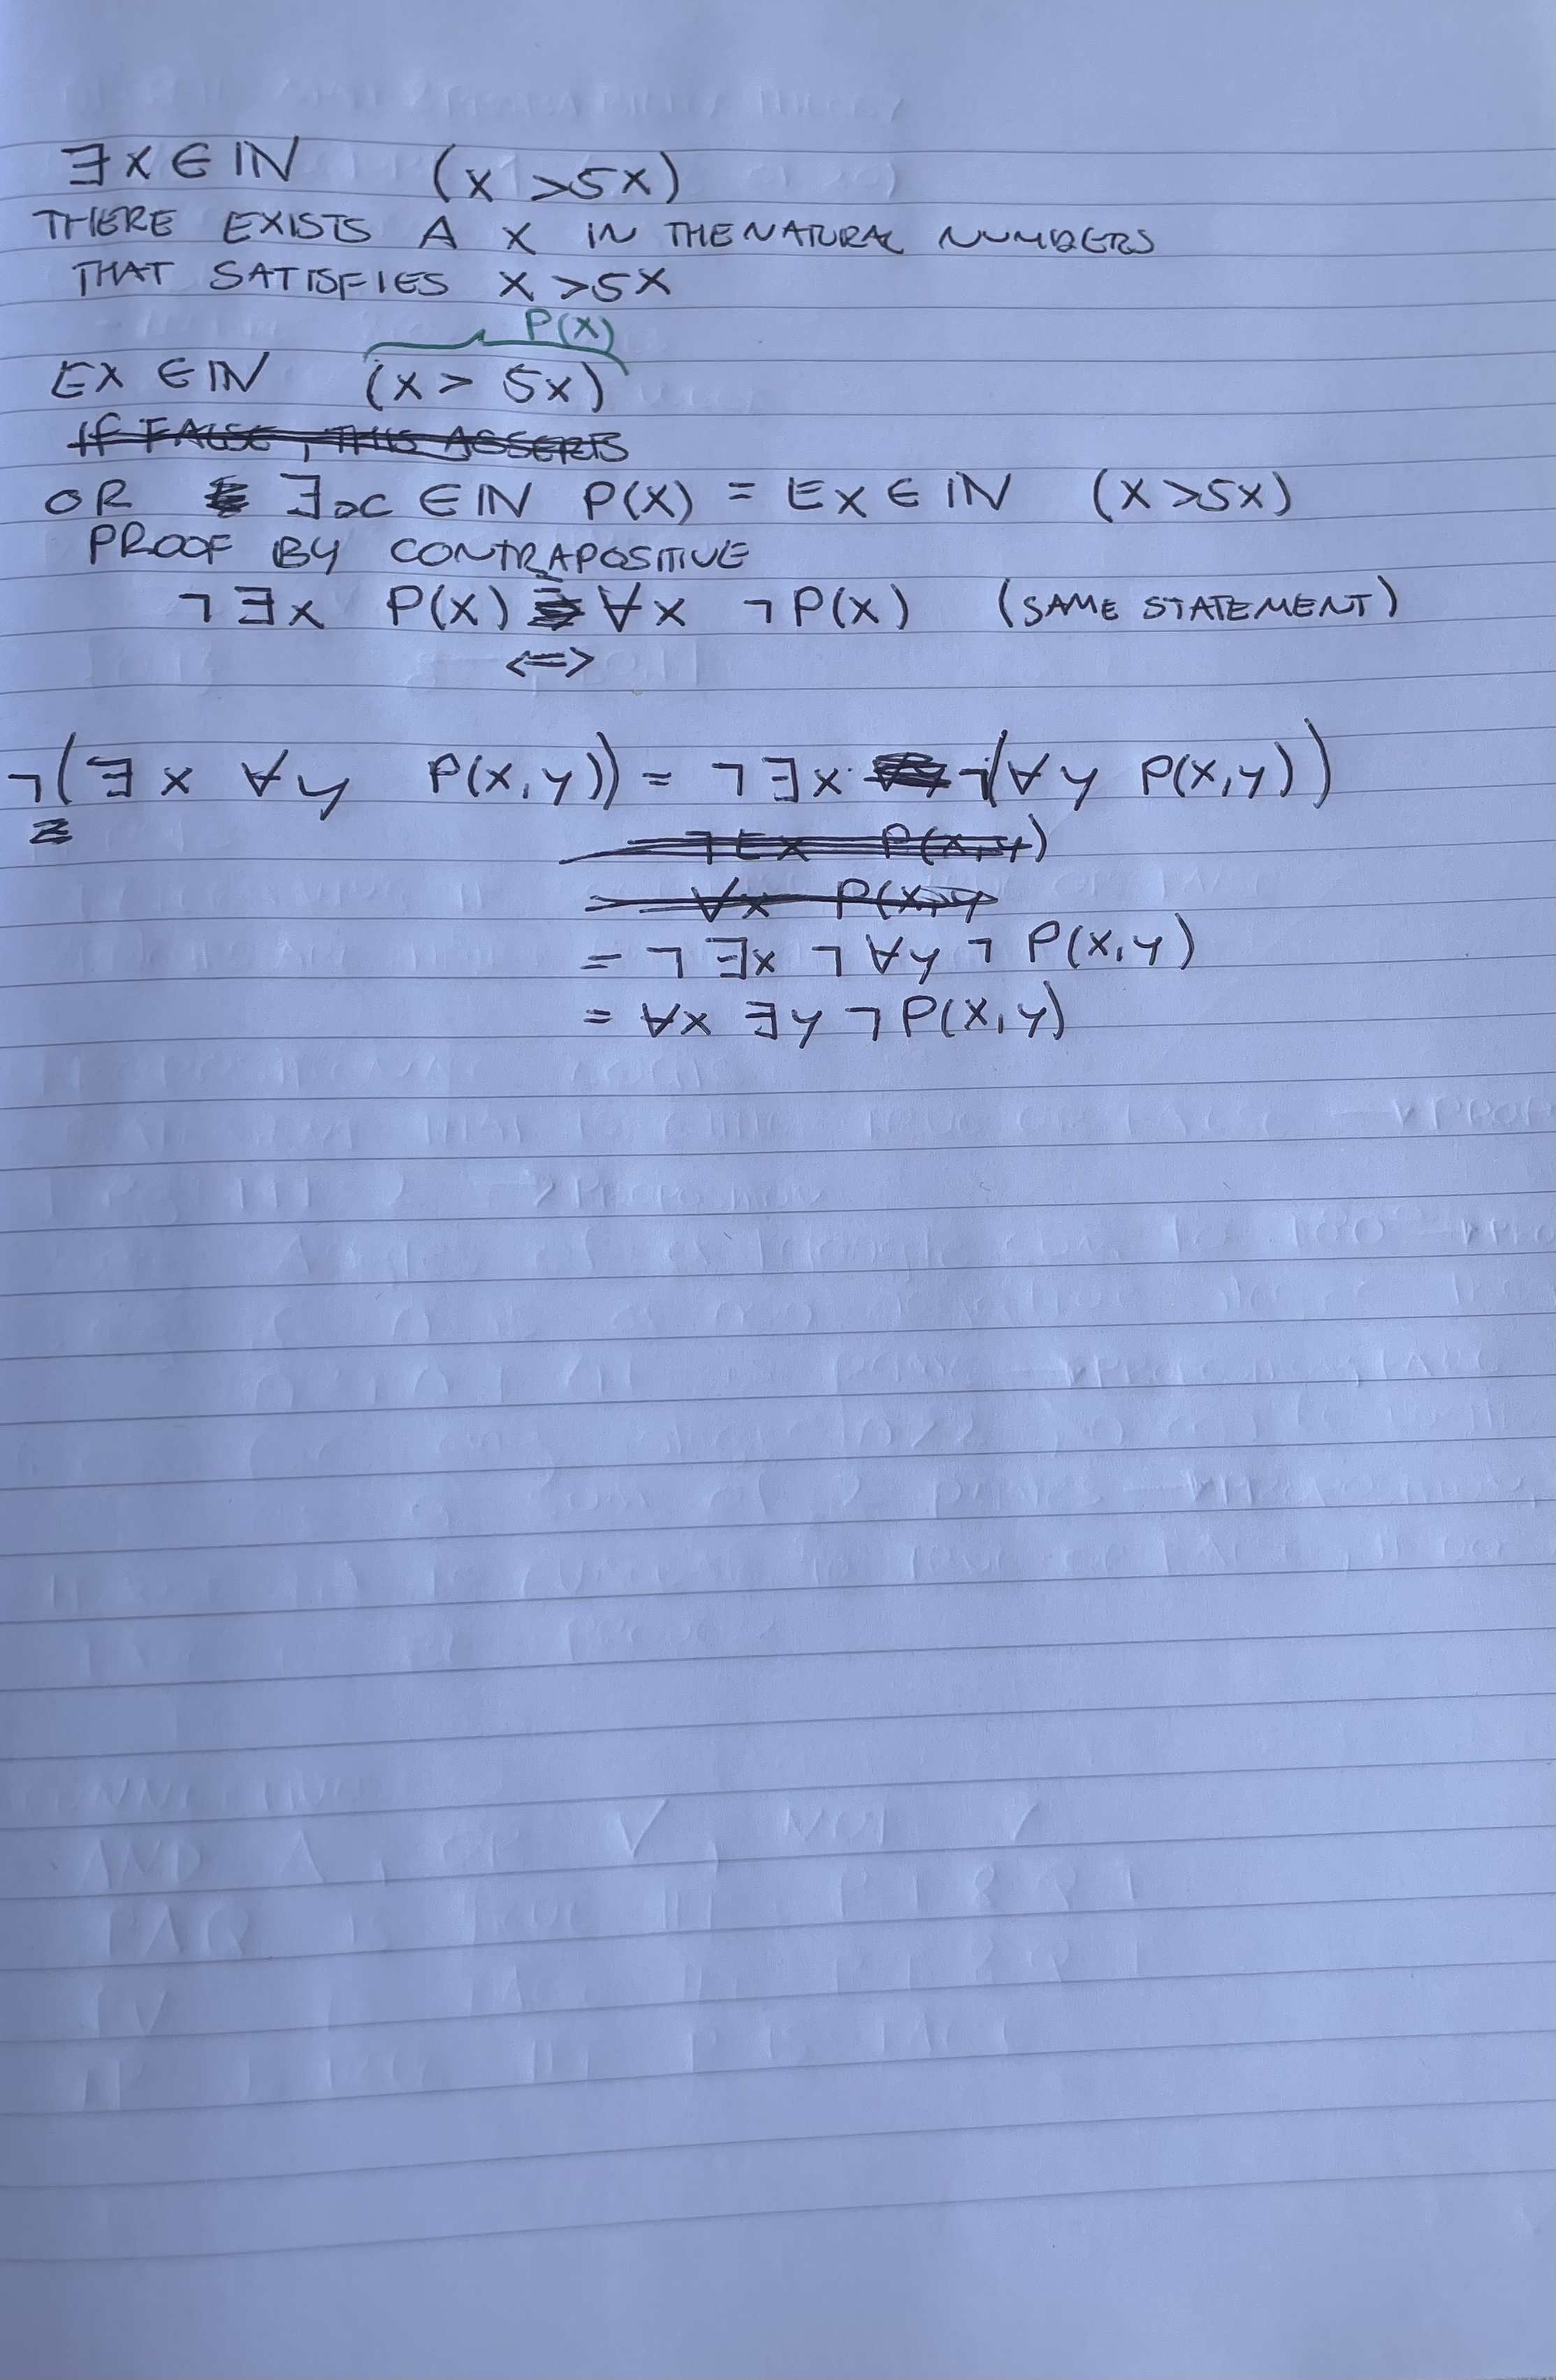 ∃x ∈ ℕ (x > 5x)
THERE EXISTS A X IN THE NATURAL NUMBERS
THAT SATISFIES X > 5X
P(X)
EX ∈ ℕ (x > 5x)
IF FALSE, THIS ASSERTS
OR ∃x ∈ ℕ P(X) = EX ∈ ℕ (X > 5X)
PROOF BY CONTRAPOSITIVE
¬∃x P(X) ∀x ¬P(X) (SAME STATEMENT)
<=>
¬(∃x ∀y P(x,y)) = ¬∃x ¬(∀y P(x,y))
¬Ex P(x,y)
∀x P(x,y
= ¬∃x ¬∀y ¬P(x,y)
= ∀x ∃y ¬P(x,y)